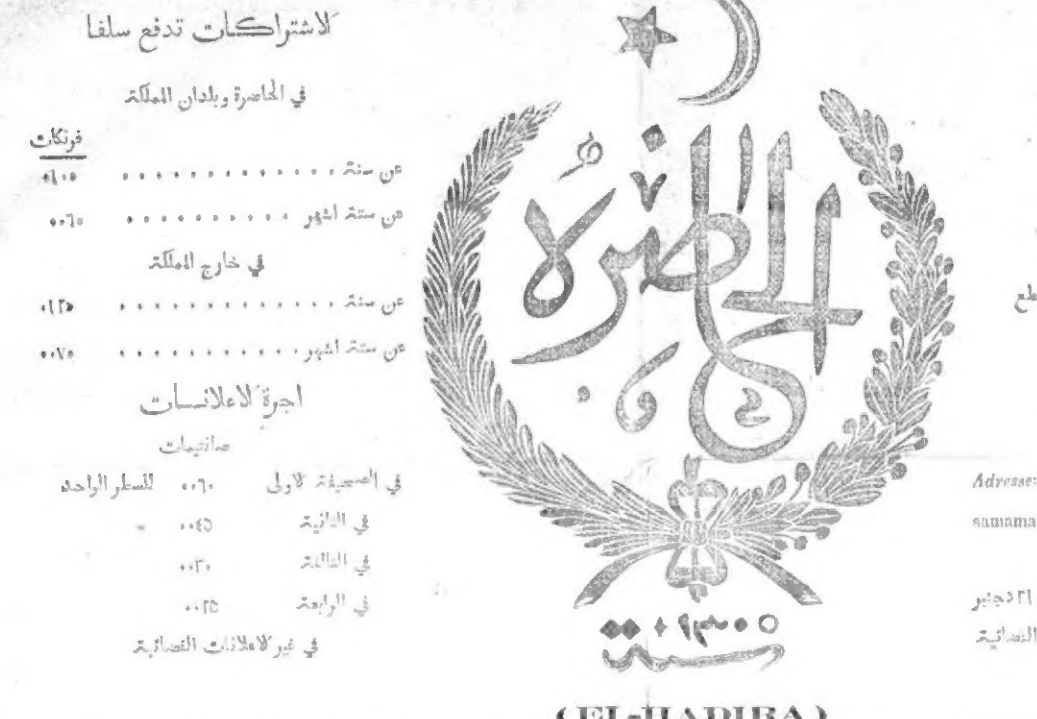 الاشتراكات تدفع سلفا
في الحاضرة وبلدان المملكة
فرنكات
عن سنة
عن ستة اشهر
في خارج المملكة
عن سنة
عن ستة اشهر
اجرة الاعلانات
صانتيمات
في الصحيفة الاولى ٠٠٦٠ للسطر الواحد
في الثانية ٠٠٤٥ »
في الثالثة ٠٠٣٠
في الرابعة ٠٠٢٥
في غير الاعلانات القضائية
الحاضرة
سنة
(EL-HADIRA)
طع
Adresse:
samama
٢١ دجنبر
القضائية